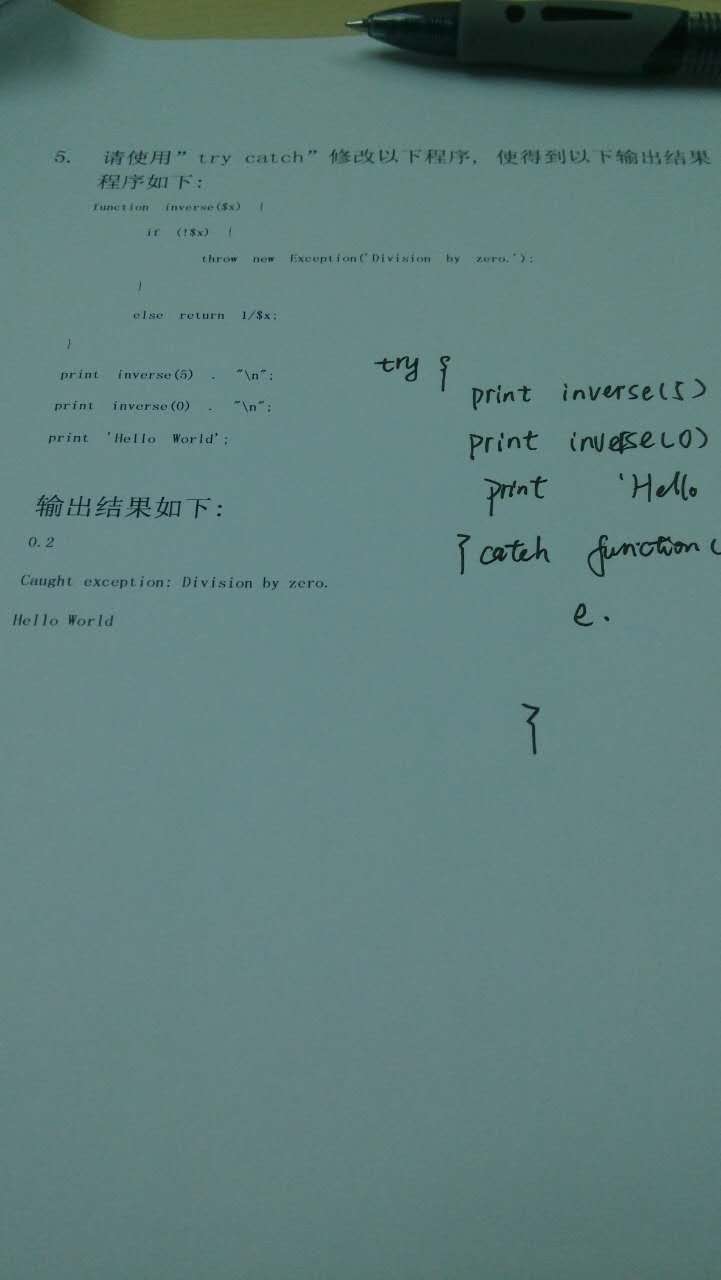 5. 请使用”try catch”修改以下程序，使得到以下输出结果
程序如下：
function inverse($x) {
if (!$x) {
throw new Exception('Division by zero.');
}
else return 1/$x;
}
print inverse(5) . "\n";
print inverse(0) . "\n";
print 'Hello World';
输出结果如下：
0.2
Caught exception: Division by zero.
Hello World
try {
print inverse(5)
print inverse(0)
print 'Hello
} catch function(
e.
}